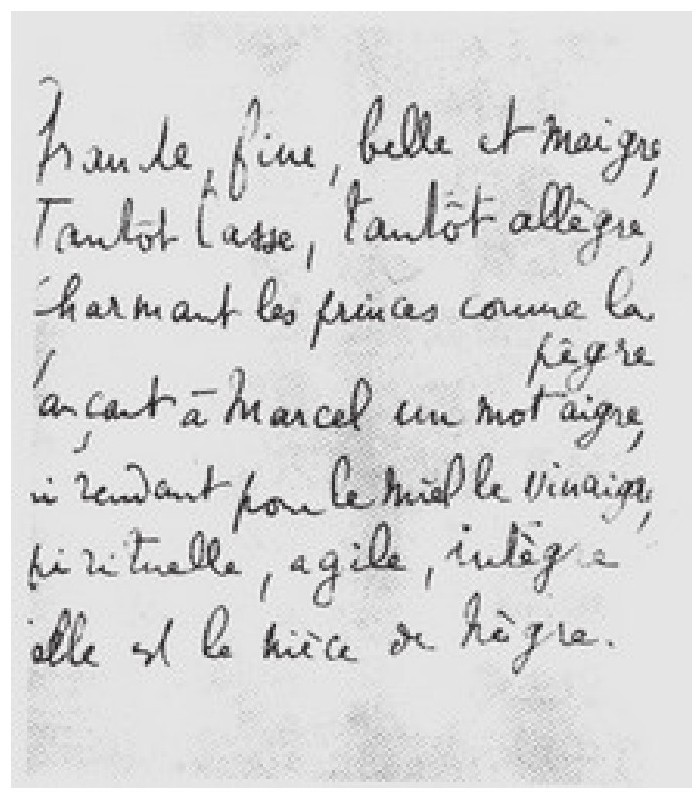 Grande, fine, belle et maigre,
Tantôt lasse, tantôt allègre,
Charmant les princes comme la
pègre
Lançant à Marcel un mot aigre,
ui rendant pour le miel le vinaigre,
pirituelle, agile, intègre
elle est la nièce de Nègre.